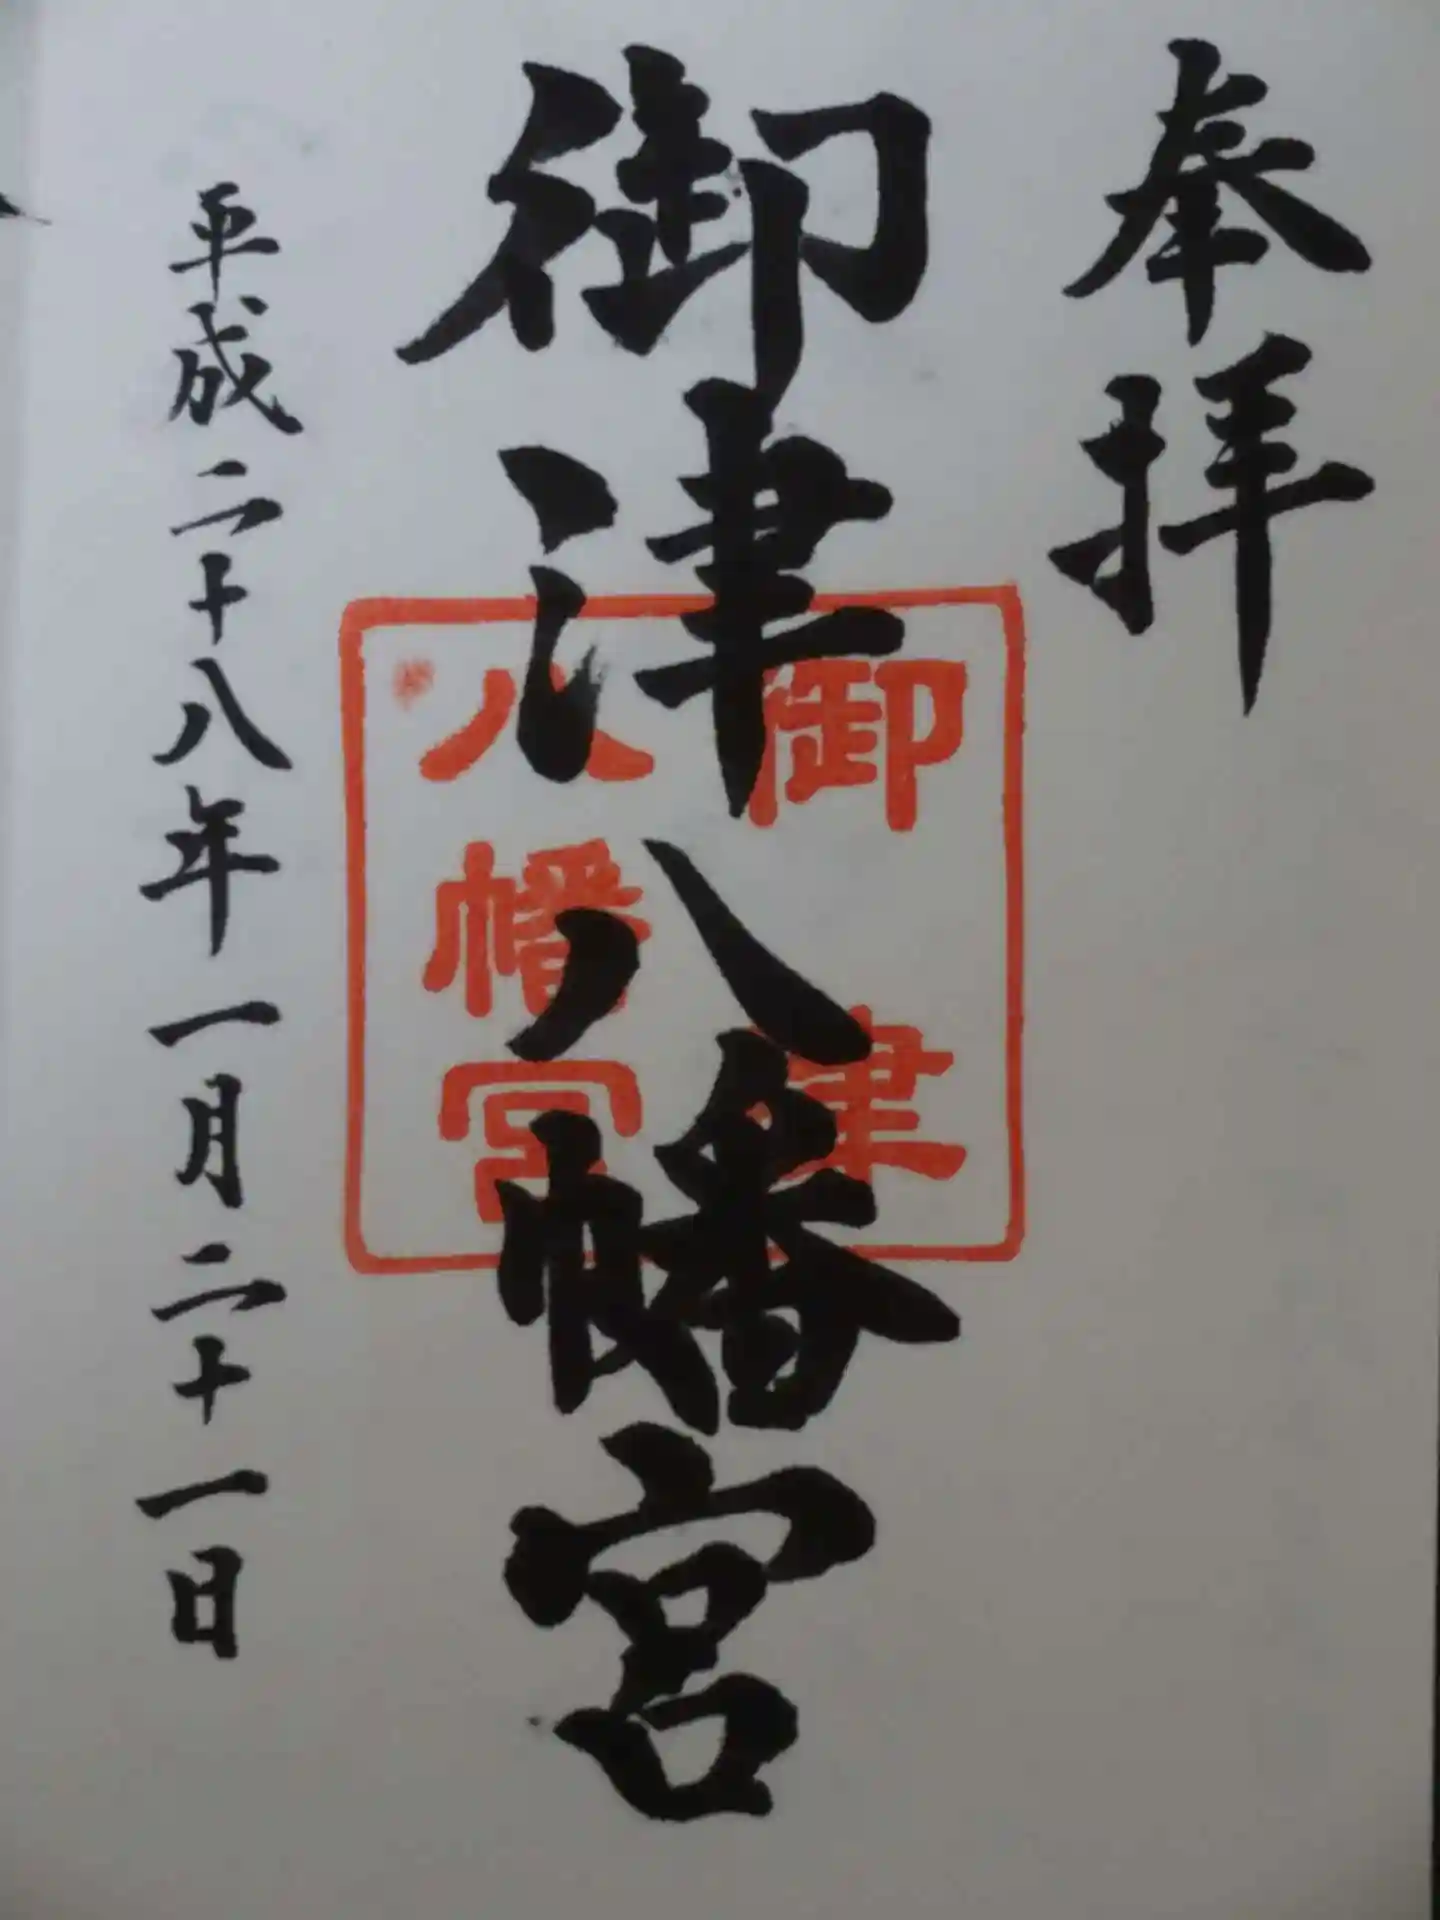 奉拝
御津八幡宮
御津
八幡宮
平成二十八年一月二十一日